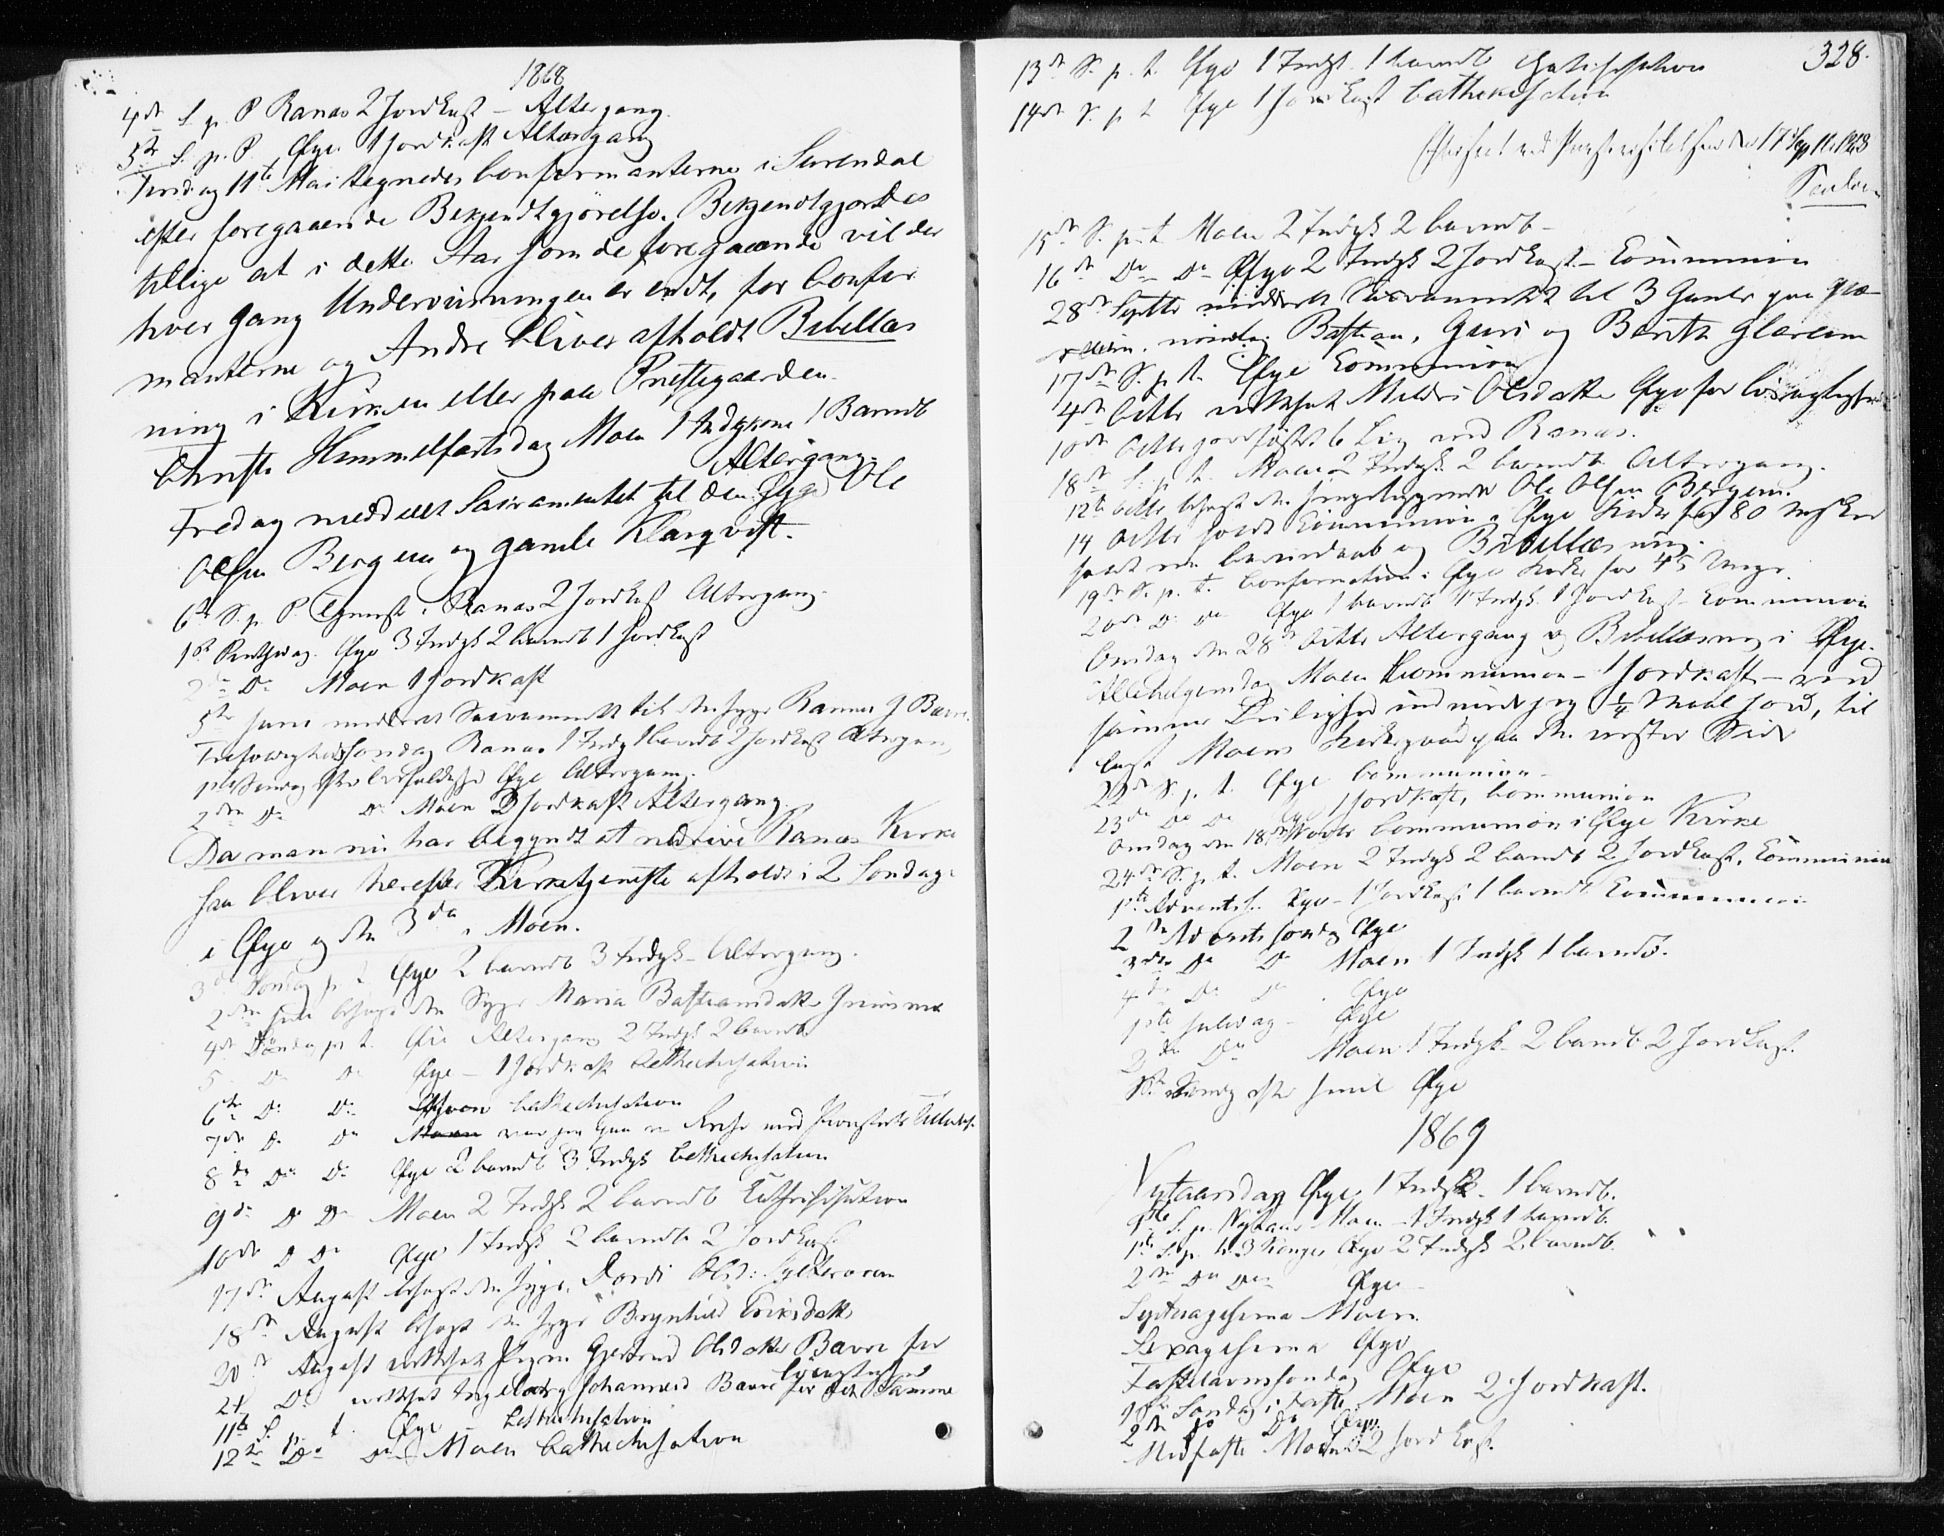 1868
4de S. p. P Ranæs 2 Jordkast – Altergang.
5te S. p. P Øye 1 Jordkast Altergang
Tirsdag 11te Mai tegnedes Confirmanterne i Surendal
efter foregaaende Bekjendtgjørelse. Bekjendtgjordes
tillige at i dette Aar som de foregaaende vil der
hver Gang Undervisningen er endt, for Confir
manterne og Andre bliver afholdt Bibellæs
ning i Kirken eller paa Prestegaarden.
Christi Himmelfartsdag Moen 1 Indgk 1 Barndb
Altergang.
Fredag meddelt Sacramentet til den syge Ole
Olsen Bergem og gamle Klarqvist.
6te S. p. P. Tjeneste i Ranæs 2 Jordkast Altergang.
1ste Pintsedag Øye 3 Indgk 2 barndb 1 Jordkast
2den Do Moen 1 Jordkast
5te Juni meddelt Sacramentet til den syge
Trefoldighedssøndag Ranæs 1 Indg 1 barndb 2 Jordkast Altergang
1ste Søndag efter Trefoldighed Øye Altergang.
2den Do Do Moen 2 Jordkast Altergang.
Da man nu har begyndt at nedrive Ranæs Kirke
saa bliver herefter Kirketjeneste afholdt i 2 Søndage
i Øye og den 3die i Moen.
3die Søndag p t Øye 2 barndb 3 Indgk – Altergang.
2den Juli besøgt den Syge Maria Bastiansdatter
4de Søndag p t. Øie Altergang 2 Indgk 2 barndb
5 Do Do Øye – 1 Jordkast Cathechisation
6te Do Do Cathechisation
7de Do Do var jeg paa en Reise med Provstens Tilladelse
8de Do Do Øye 2 barndb 3 Indgk Cathechisation
9de Do Do Moen 2 Indgk 2 barndb Cathechisation
10de D Do Øye 1 Indgk 2 barndb 2 Jordkast
17de August besøgt den syge Dordi Olsd:
18de August besøgt den syge Brynhild Eriksdatter
20de August Pigen Gjertrud Olsdatter Bævre for
21 Do Ingeborg Johannesd Bævre for det samme
11te S. p. t. Øye Cathechisation
12te Do Do Moen Cathechisation
328.
13de S. p. t. Øye 1 Indgk. 1 barndb Catechisation
14de S. p t Øye 1 Jordkast Cathekisation
Efterseet ved Provstevisitatsen den 17 Sept 1868
15de S. p. t. Moen 2 Indgk 2 barndb –
16de Do Do Øye 2 Indgk 2 Jordkast – Communion
28de Septbr meddelt Sacramentet til 3 Gamle paa
Bastian, Guri og Berith Glærem
17de S. p. t. Øye Communion
4de Octbr Olsdatter Øye for
10de Octbr jordfæstet 6 Lig ved Ranæs.
18de S. p. t. Moen 2 Indgk 2 barndb Altergang.
12te Octbr besøgt den sengeliggende Ole Olsen Bergem.
14 Octbr holdt Communion i Øye Kirke for 80 Mskr
samt en barnedaab og Bibellæsning.
19de S. p. t. Confirmation i Øye Kirke for 45 Unge.
20de Do Do Øye 1 barndb 1 Indgk. 1 Jordkast – Communion
Onsdag den 28de Octbr Altergang og Bibellæsning i Øye.
Allehelgensdag Moen Communion – 1 Jordkast – ved
samme Leilighed indviede jeg 1/4 Maal Jord, til
Moens Kirkegaard paa den vestre Side
22de S. p. t. Øye Communion –
23de Do Do 1 Jordkast, Communion
Onsdag den 18de Novbr Communion i Øye Kirke
24de S. p. t. Moen 2 Indgk 2 barndb 2 Jordkast, Communion
1ste Advents S. Øye – 1 Jordkast 1 barndb Communion
2den Advents Søndag Øye
3die Do Do Moen 1 Indgk 1 barndb.
4de Do Do Øye
1ste Juledag – Øye
2den Do Moen 1 Indgk 2 barndb 2 Jordkast.
Søndag efter Juul Øye
1869
Nytaarsdag Øye 1 Indgk. 1 barndb.
1ste S. p. Nytaar Moen – 1 Indgk 1 barndb.
1ste S. p. H. 3 Konger Øye 2 Indgk 2 barndb.
2den Do Do Øye
Septuagesima Moen.
Sexagesima Øye
Fastelavnssøndag Øye
1ste Søndag i Faste Moen 2 Jordkast.
2den Do Do Øye
Midfaste Moen 2 Jordkast.